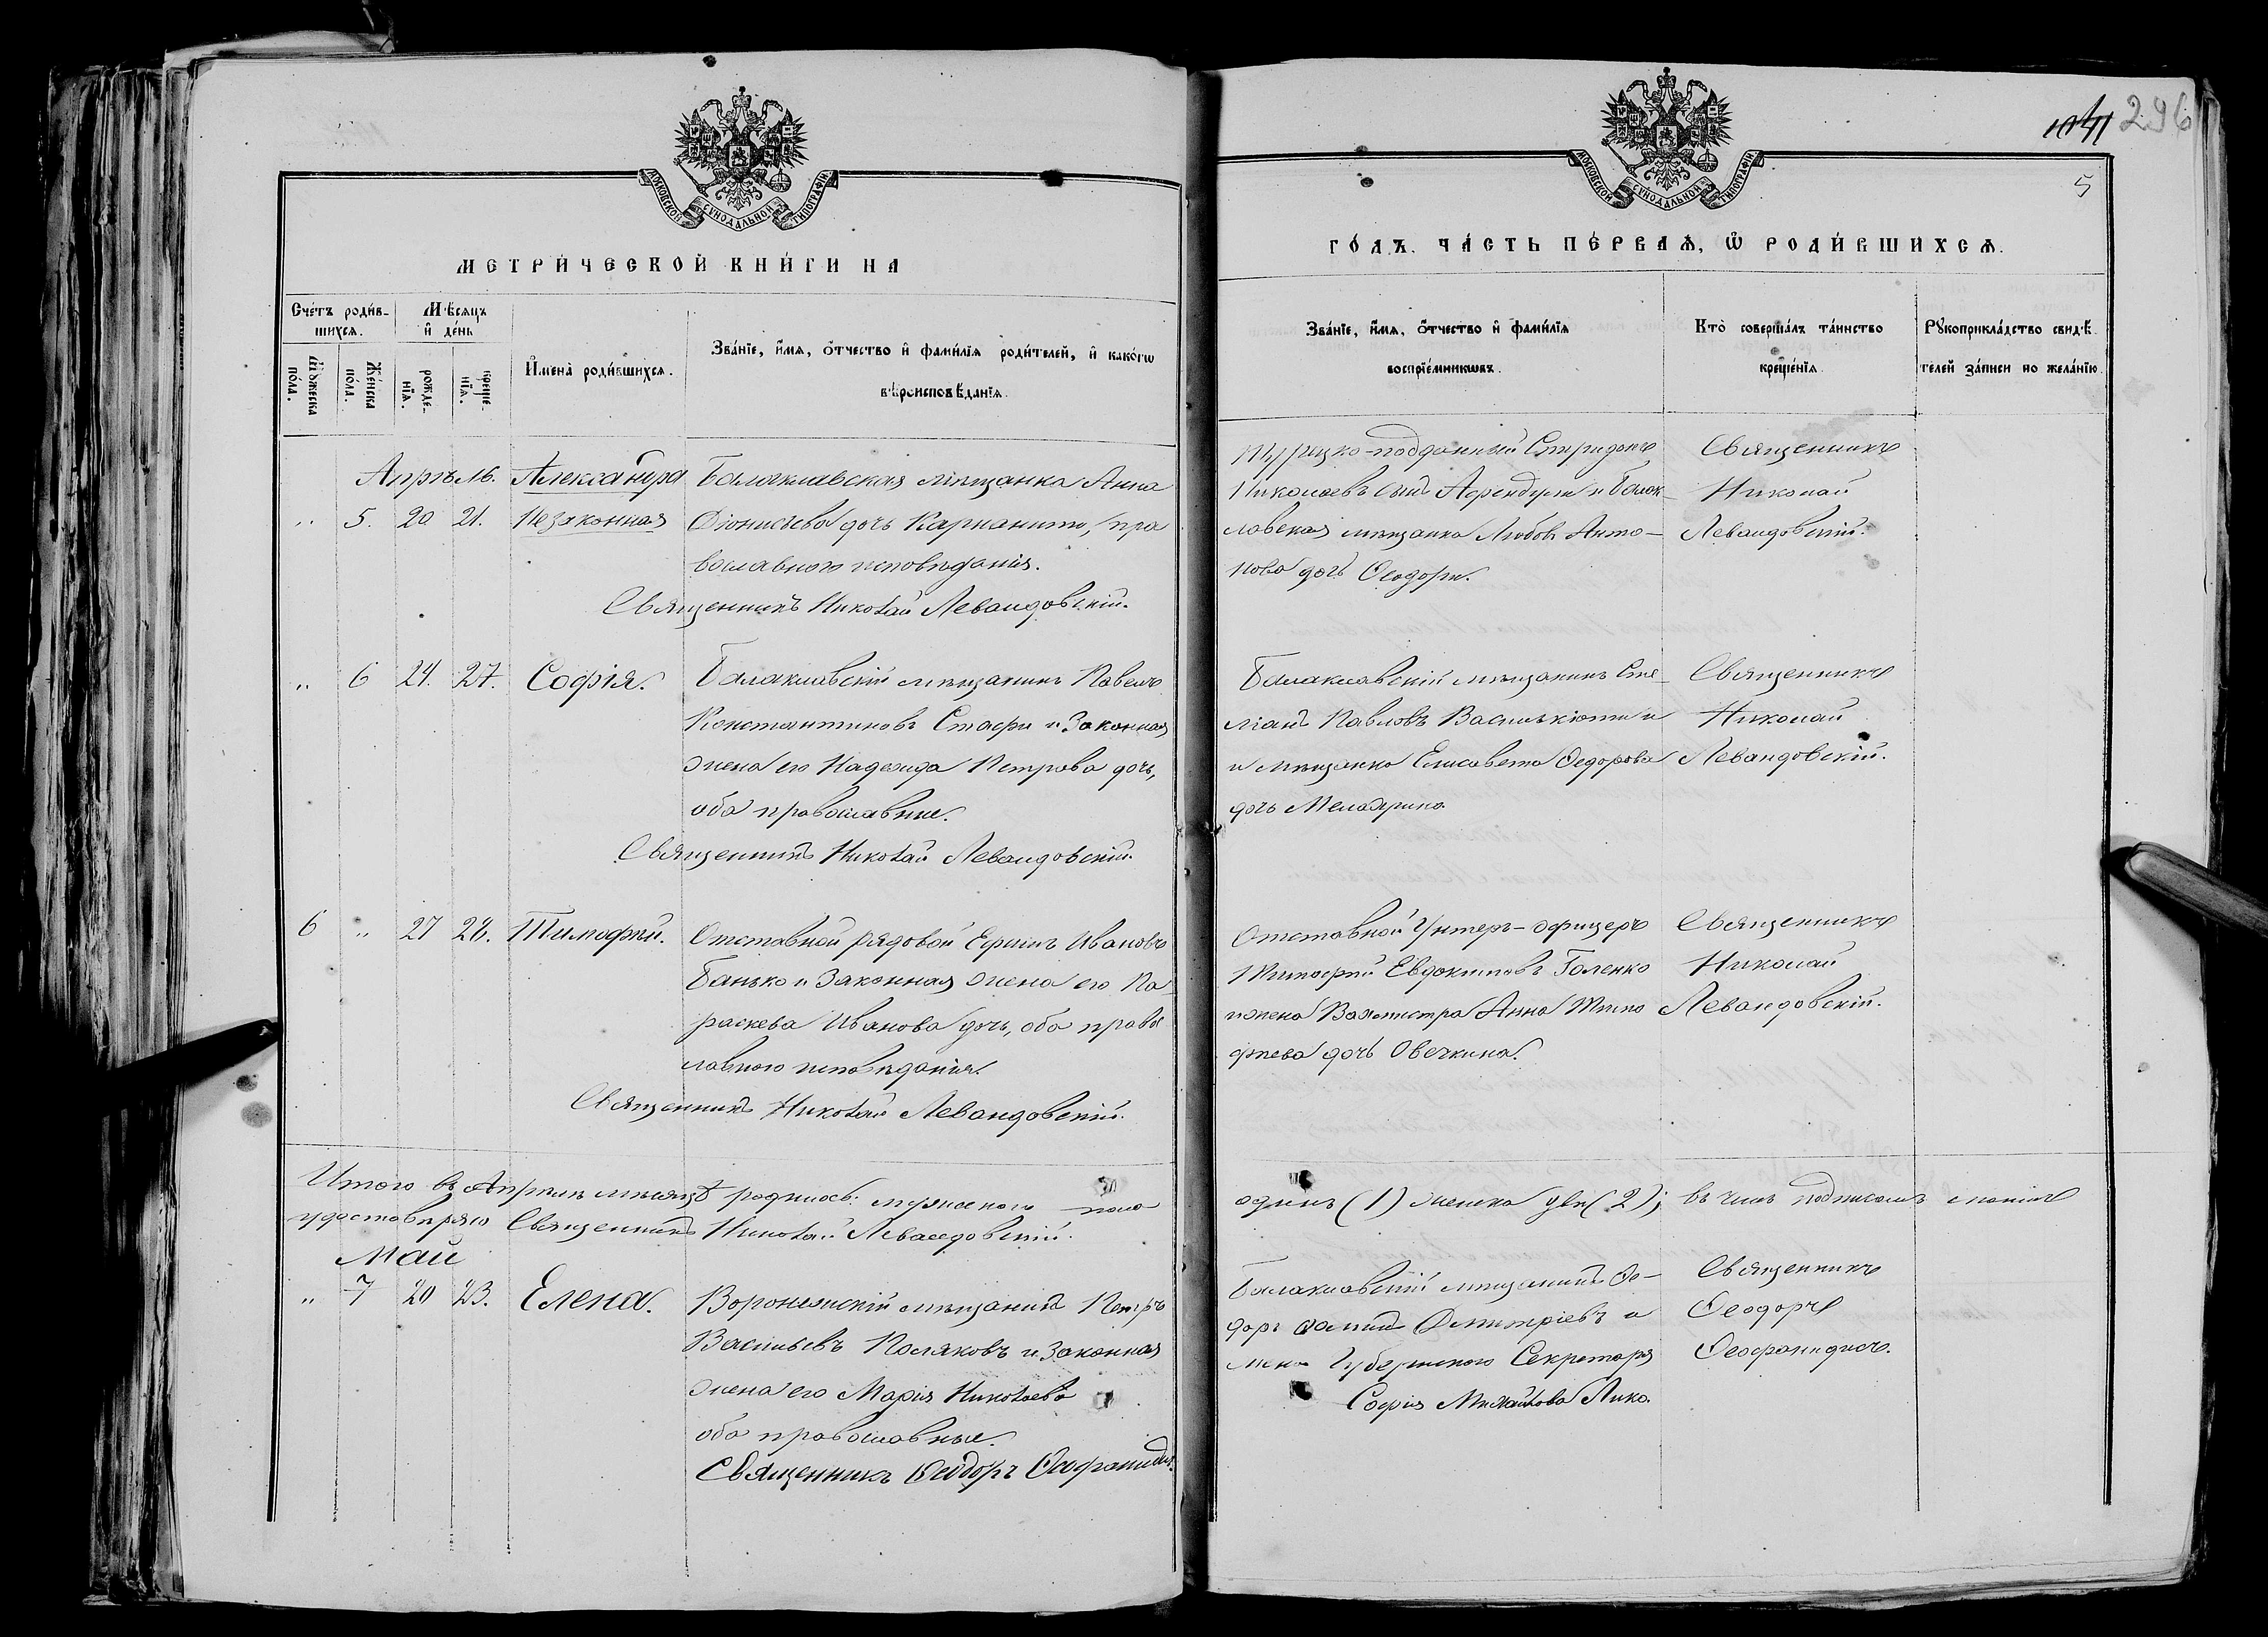 1041 296
5
МОСКОВСКОЙ СѴНОДАЛЬНОЙ ТИПОГРАФІИ
МЕТРИ́ЧЕСКОЙ КНИ́ГИ НА
Сче́тъ роди́в-
шихсѧ.
Мѣсяцъ
и҆ де́нь
Мꙋжеска
по́ла.
Же́нска
по́ла.
рожде-
нїѧ.
креще-
нїѧ.
И҆мена̀ роди́вшихсѧ.
Зва́нїе, и҆́мѧ, ѻ҆́тчество и҆ фами́лїѧ роди́телей, и҆ како́гѡ
вѣроисповѣданїѧ.
Апрѣль.
Александра
Балаклавская мѣщанка Анна
" 5. 20 21. Незаконная
Діонисьева дочь Карпанито, пра
вославного исповѣданія.
Священникъ Николай Левандовскій.
" 6 24. 27. Софія.
Балаклавскій мѣщанинъ Павелъ
Константиновъ Стафи и законная
жена его Надежда Петрова дочь,
оба православные.
Священникъ Николай Левандовскій.
6 " 27 28. Тимофей.
Отставной рядовой Ефимъ Ивановъ
Банько и законная жена его Па-
раскева Иванова дочь, оба право
лавного исповѣданія.
Священникъ Николай Левандовскій.
Итого въ Апрѣлѣ мѣсяцѣ родилось: мужескаго пола
удостовѣряю Священникъ Николай Левандовскій.
Май
" 7 20 23. Елена.
Воронежскій мѣщанинъ Петръ
Васильевъ Поляковъ и законная
жена его Марія Николаева
оба православные.
Священникъ Ѳеодоръ Ѳеофанидис.
МОСКОВСКОЙ СѴНОДАЛЬНОЙ ТИПОГРАФІИ
ГО́ДЪ. ЧА́СТЬ ПЕ́РВАѦ, Ѽ РОДИ́ВШИХСѦ.
Зва́нїе, и҆́мѧ, ѻ҆́тчество и҆ фами́лїѧ
воспрїе́мникѡвъ.
Кто̀ соверша́лъ та́инство
креще́нїѧ.
Рꙋкоприкла́дство свидѣ́-
телей за́писи по жела́нїю.
Турецко-подданный Спиридонъ
Николаевъ сынъ Афендули и Балак-
лавская мѣщанка Любовь Анто-
нова дочь Ѳеодори.
Священникъ
Николай
Левандовскій.
Балаклавскій мѣщанинъ Сте-
ліанъ Павловъ Василькіоти и
и мѣщанка Елисавета Ѳедорова
дочь
Священникъ
Николай
Левандовскій.
Отставной Унтеръ-офицеръ
Тимофей Евдокимовъ Галенко
и жена Вахмистра Анна Тимо
фѣева дочь Овечкина.
Священникъ
Николай
Левандовскій.
одинъ (1) женска двѣ (2); въ чемъ подписомъ
Балаклавскій мѣщанинъ Ѳе-
доръ Дмитріевъ и
жена Губернского Секретаря
Софія Михайлова Лико.
Священникъ
Ѳеодоръ
Ѳеофанидисъ.